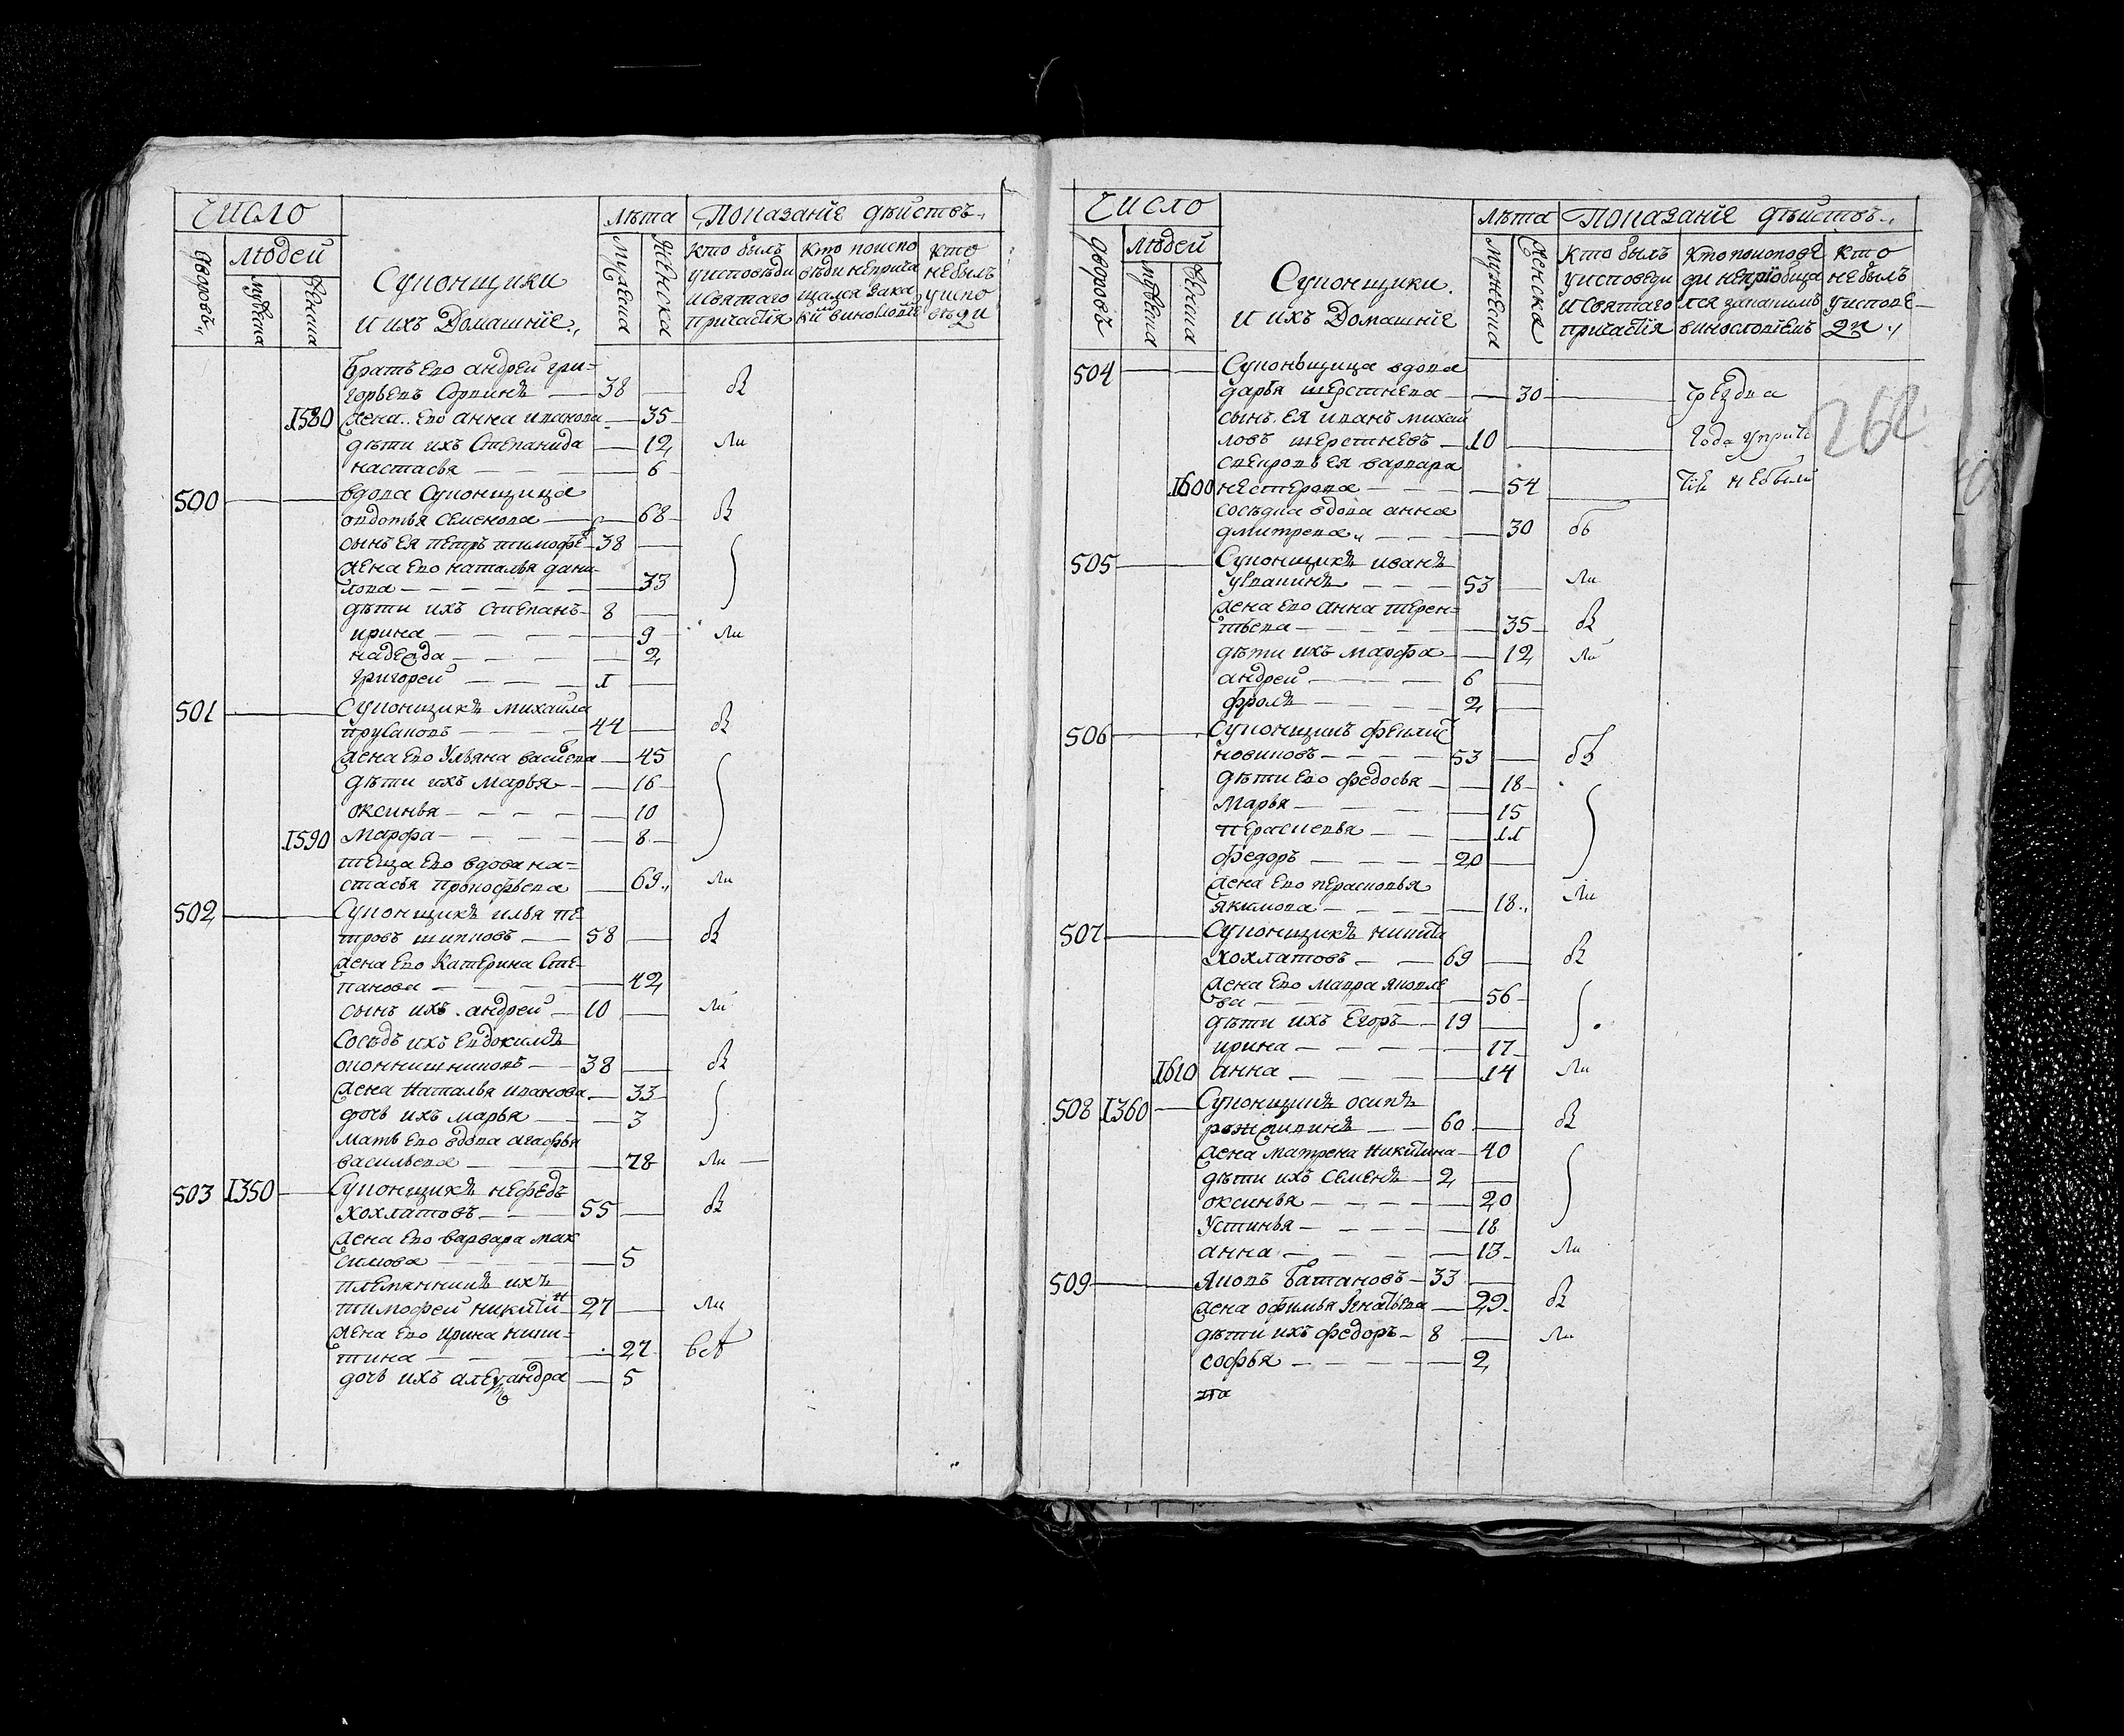 Число
Лѣта Показанїе дѣйствъ.,
дворовъ.,
людей
мужеска
женска
Суконщики
И ихъ Домашнїе.,
Мужеска
Женска
кто былъ
уисповѣди
исвятаго
причастїя
кто поиспо
вѣди неприча
щался зака
кто
небылъ
уиспо
вѣди
братъ его андрей гри=
горьевъ 38
1580 жена.. его анна иванова 35
дѣти ихъ Степанида 12 ли
настасья 6
500 вдова Суконщица
овдотья Семенова 68
сынъ ея петръ тимофѣ 38
жена его наталья дани
лова 33
дѣти ихъ Степанъ 8
ирина 9 ли
надежда 2
григорей 1
501 Суконщикъ михайла
прусаковъ 44
жена его Ульяна васил
ева 45
дѣти ихъ марья 16
оксинья 10
1590 марфа 8
теща его вдова на=
стасья прокофьева 69., ли
502 Суконщикъ илья пе
тровъ 58
жена его Катерина Сте
панова 42
сынъ ихъ андрей 10 ли
Сосѣдъ ихъ Евдокимъ
38
жена Наталья иванова 33
дочь ихъ марья 3
мать его вдова агафья
васильева 78 ли
503 1350 Суконщикъ нефедъ
хохлатовъ 55
жена его варвара мак
симова 5
племянникъ ихъ
тимофей никитин 27 ли
жена его ирина ники=
тина 27
дочь ихъ александра 5
Число
Лѣта Показанїе дѣйствъ.,
дворовъ
людей
мужеска
женска
Суконщики.
И ихъ Домашнїе
Мужеска
Женска
кто былъ
уисповеди
исвятаго
причастїя
кто поиспове
ди непрїобща
лся закакимъ
винословїемъ
кто
небылъ
уисповѣ
ди.,
504 Суконьщица вдова
дарья шерстнева 30
сынъ ея иванъ михай
ловъ шерстневъ 10 года
262
свекровь ея варвара
1600 нестерова 54 небыли
сосѣдка вдова анна
дмитрева., 30
505 Суконщикъ иванъ
53 ли
жена его анна терен=
тьева 35
дѣти ихъ марфа 12 ли
андрей 6
фролъ 2
506 Суконщикъ
новиковъ 53
дѣти его федосья 18
марья 15
перасковья 11
федоръ 20
жена его перасковья
якимова 18., ли
507 Суконщикъ никита
хохлатовъ 69
жена его мавра яковле
ва 56
дѣти ихъ Егоръ 19
ирина 17
1610 анна 14 ли
508 1360 Суконщикъ осипъ
60
жена матрена никитина 40
дѣти ихъ семенъ 2
оксинья 20
устинья 18
анна 13 ли
509 Яковъ батановъ 33
жена офимья игнатьева 29
дѣти ихъ федоръ 8 ли
софья 2